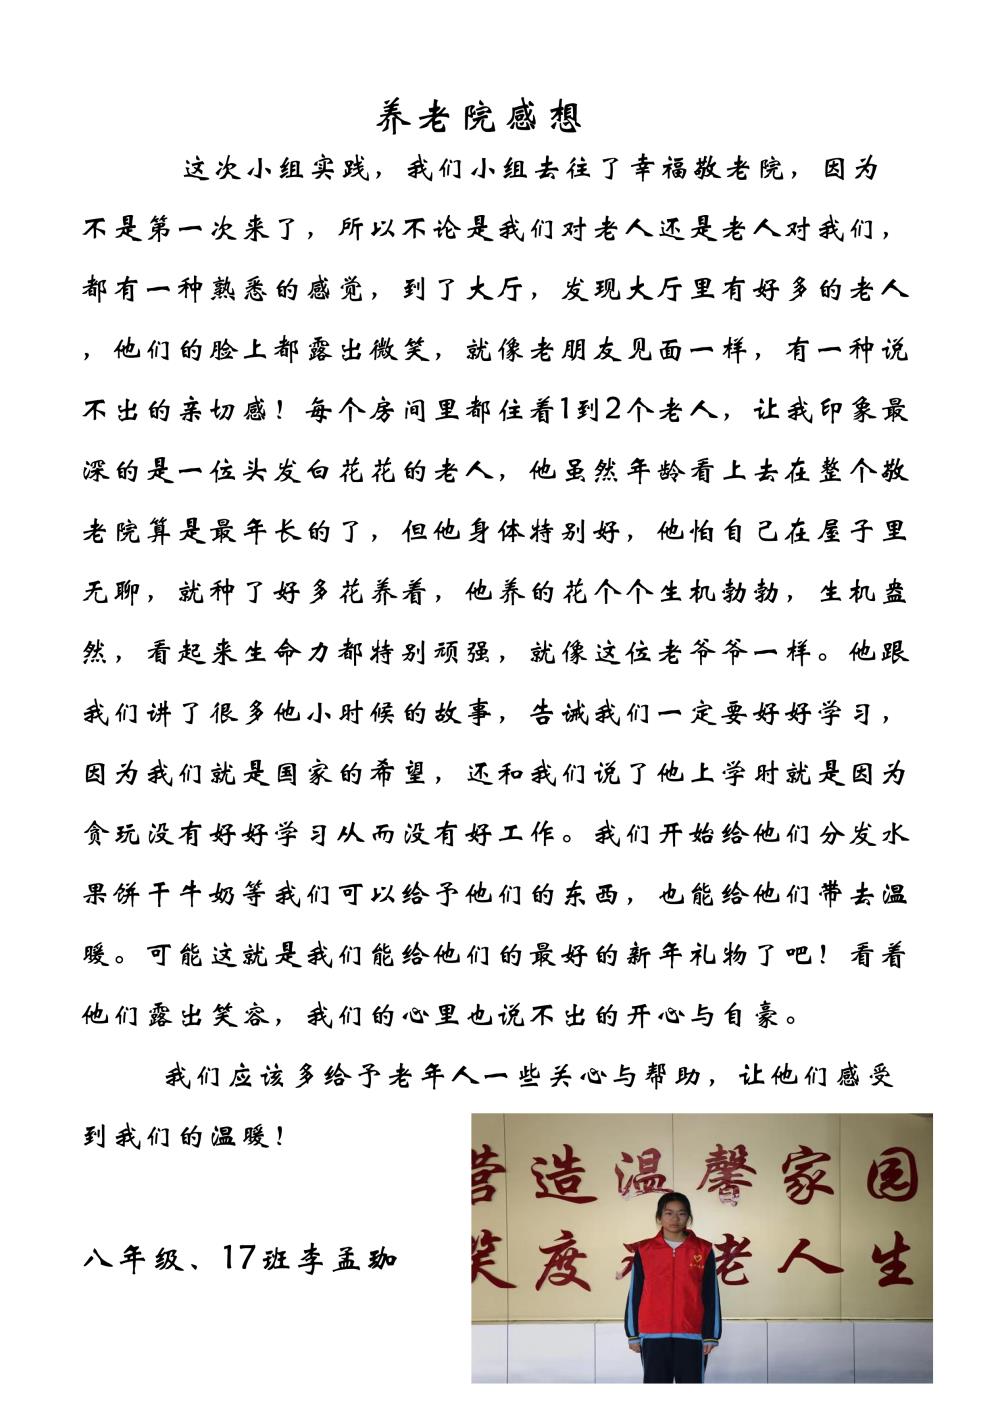 养老院感想
这次小组实践，我们小组去往了幸福敬老院，因为
不是第一次来了，所以不论是我们对老人还是老人对我们，
都有一种熟悉的感觉，到了大厅，发现大厅里有好多的老人
，他们的脸上都露出微笑，就像老朋友见面一样，有一种说
不出的亲切感！每个房间里都住着1到2个老人，让我印象最
深的是一位头发白花花的老人，他虽然年龄看上去在整个敬
老院算是最年长的了，但他身体特别好，他怕自己在屋子里
无聊，就种了好多花养着，他养的花个个生机勃勃，生机盎
然，看起来生命力都特别顽强，就像这位老爷爷一样。他跟
我们讲了很多他小时候的故事，告诫我们一定要好好学习，
因为我们就是国家的希望，还和我们说了他上学时就是因为
贪玩没有好好学习从而没有好工作。我们开始给他们分发水
果饼干牛奶等我们可以给予他们的东西，也能给他们带去温
暖。可能这就是我们能给他们的最好的新年礼物了吧！看着
他们露出笑容，我们的心里也说不出的开心与自豪。
我们应该多给予老年人一些关心与帮助，让他们感受
到我们的温暖！
八年级、17班李孟珈
营造温馨家园
笑度 老人生